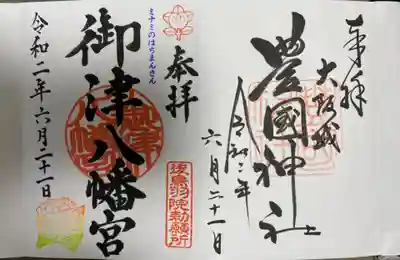 奉拝
大阪城
豊國神社
令和二年
六月二十一日
奉拝
ミナミのはちまんさん
御津八幡宮
後鳥羽院勅願所
令和二年六月二十一日